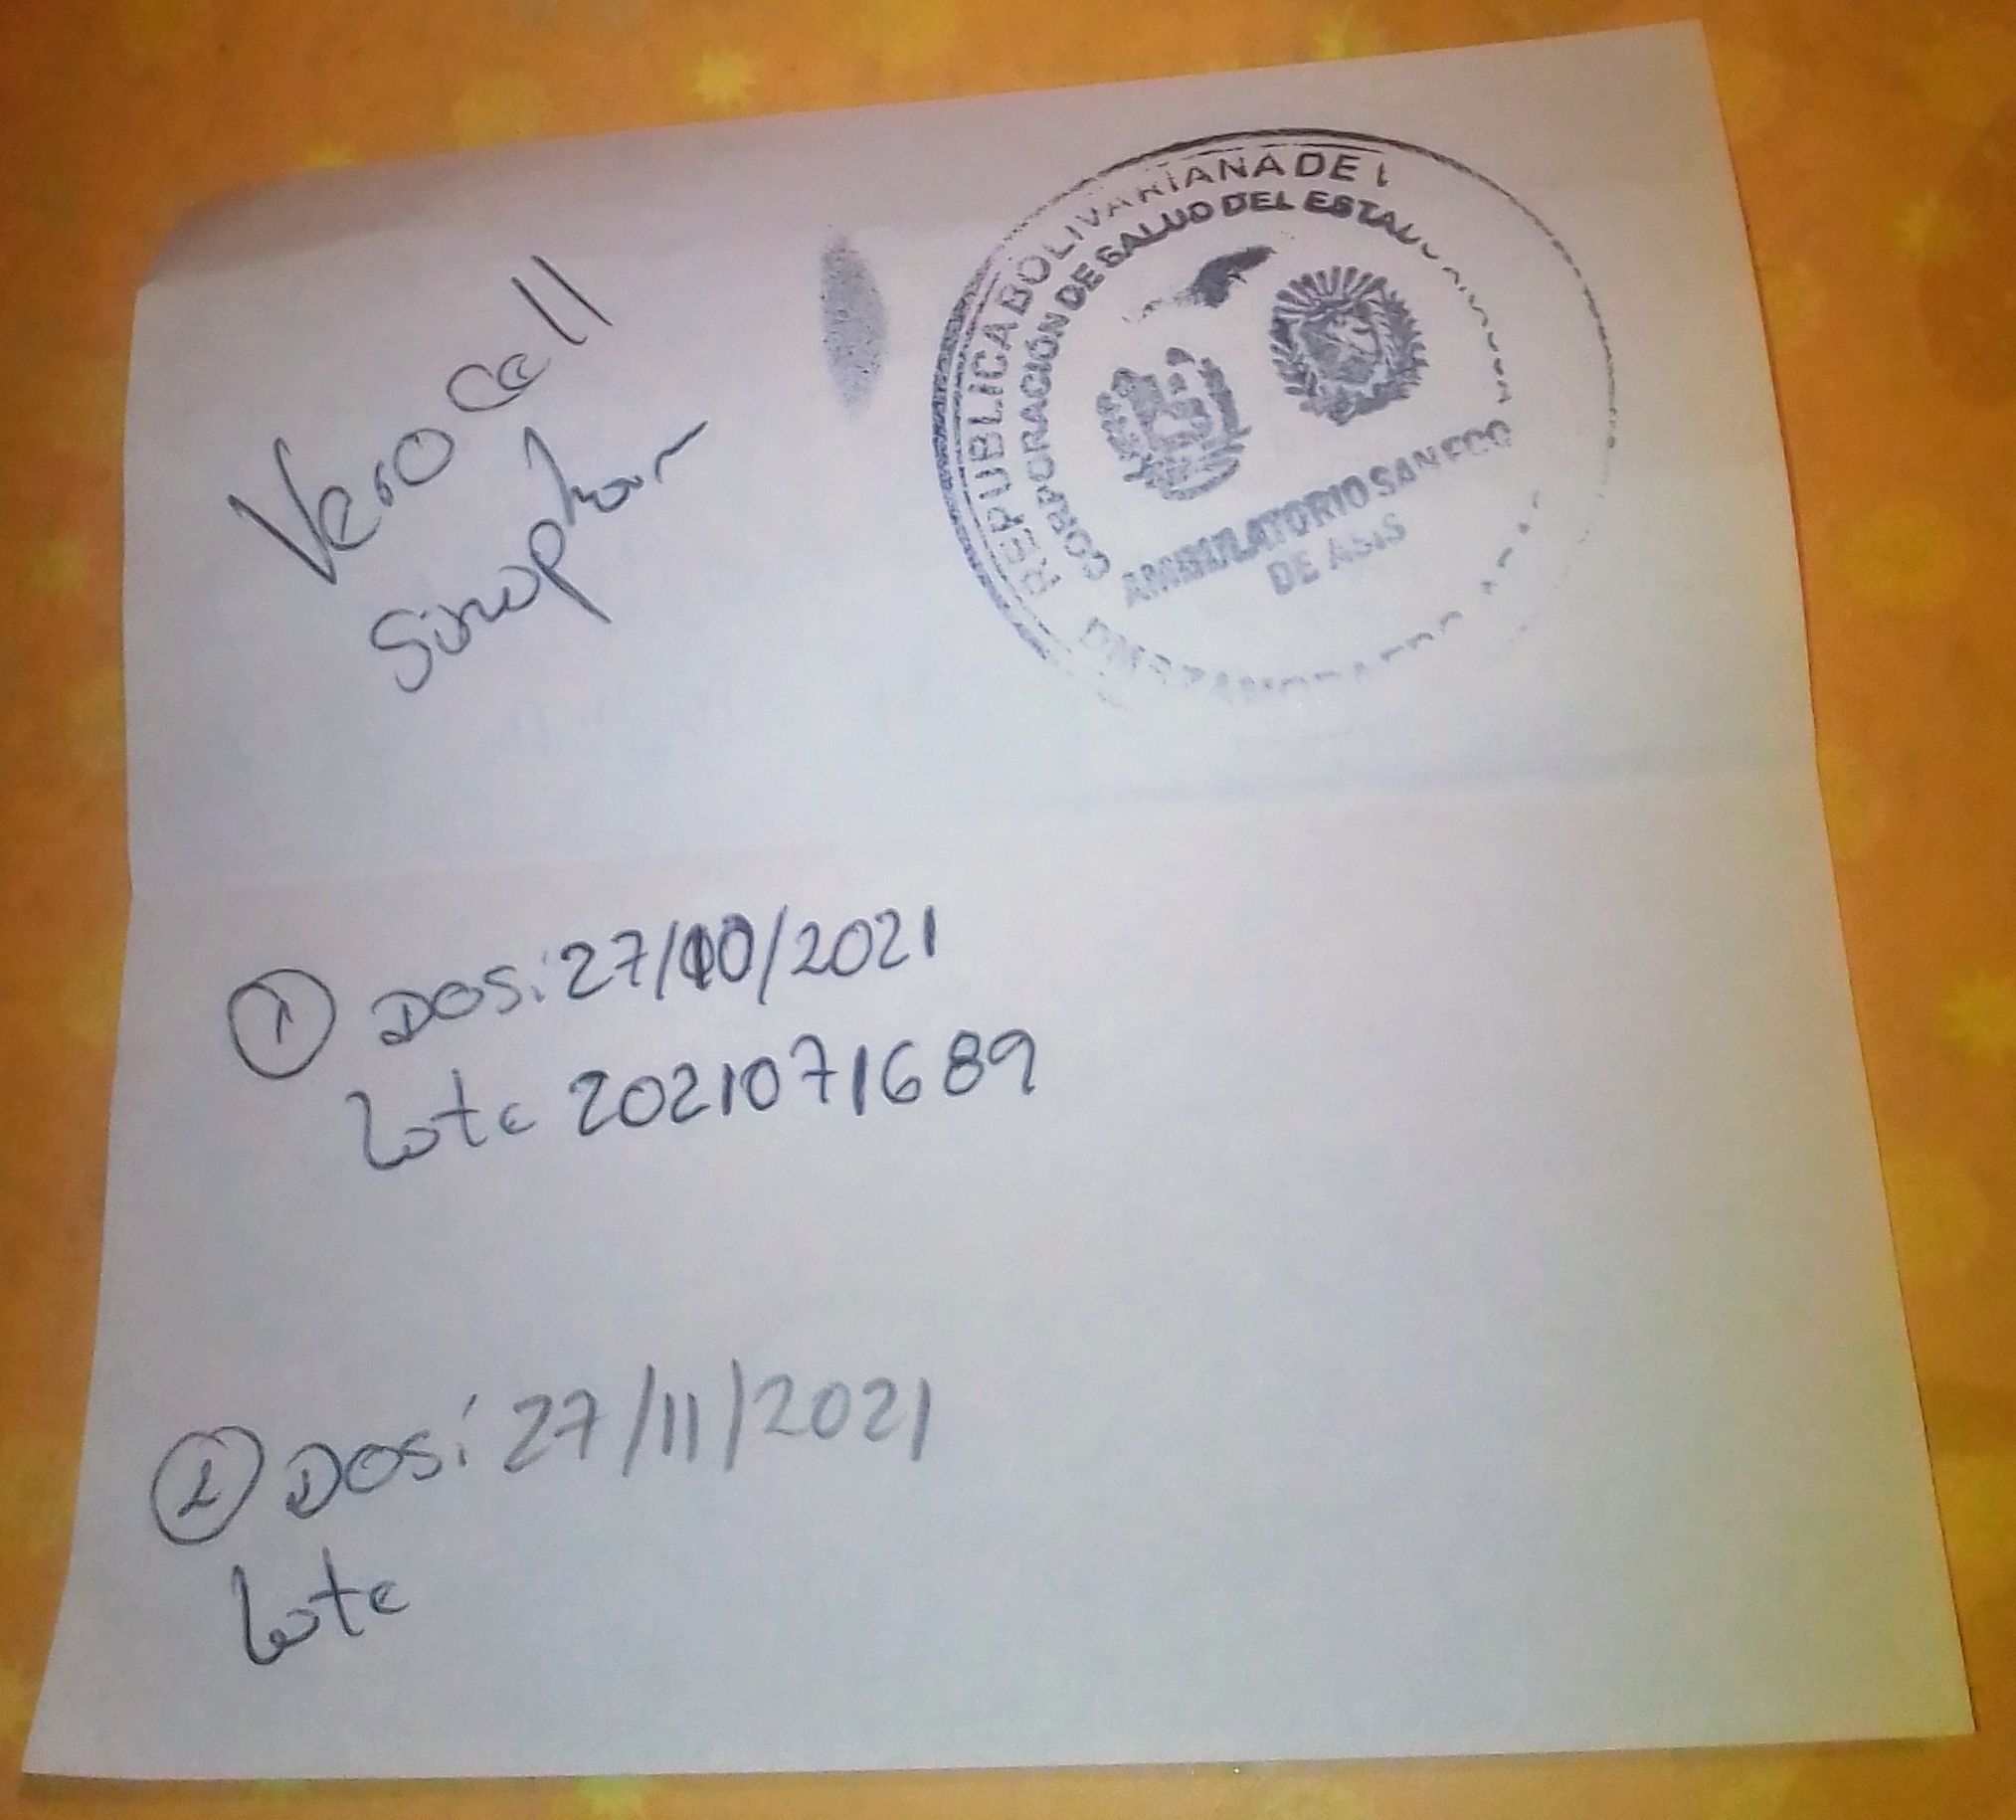 Vero Cell
Sinophar
REPUBLICA BOLIVARIANA DE
CORPORACIÓN DE SALUD DEL ESTADO
AMBULATORIO SAN FCO
DE ASIS
① DOSi: 27/10/2021
Lote 2021071689
② DOSi 27/11/2021
Lote